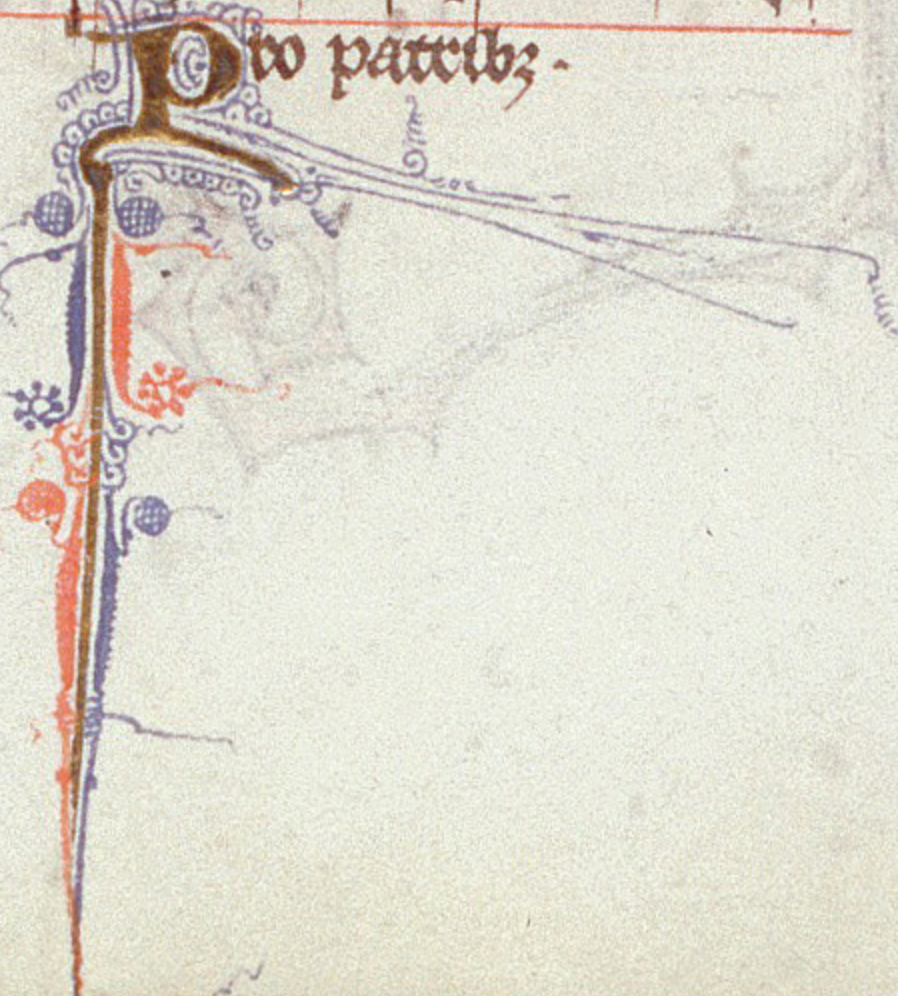 Pro patribꝫ.